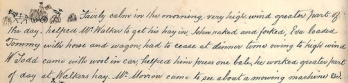 Fairly calm in the morning, very high wind greater part of
the day, helped Mr Walker to get his hay in, John raked and forked, I've loaded
Tommy with horse and wagon, had to cease at dinner time owing to high wind
W Todd came with wool in car, helped him press one bale, he worked greater part
of day at Walkers hay. Mr Morrow came to see about a mowing machine